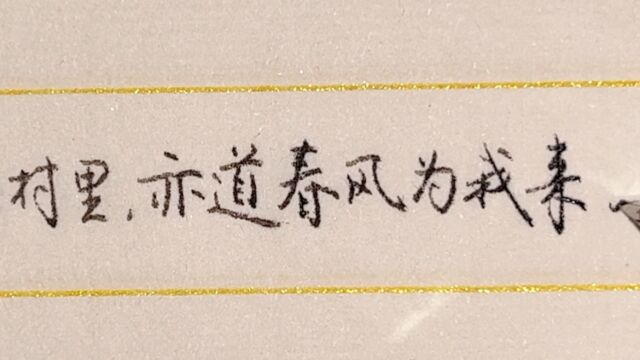 村里,亦道春风为我来、